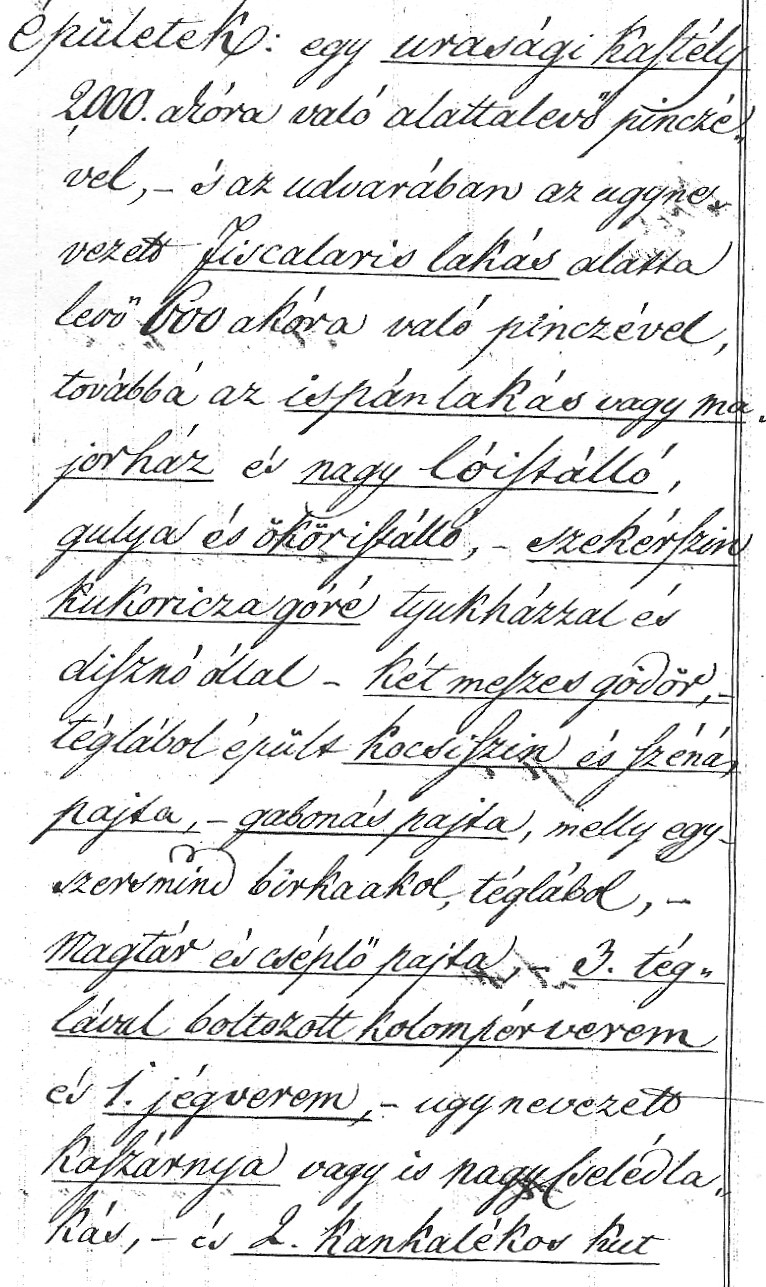 épületek: egy urasági kastély
2000. akóra való alattalevő pinczé„
vel, – és az udvarában az ugyne„
vezett Fiscalaris lakás alatta
levő 600 akóra való pinczével,
továbbá az ispánlakás vagy ma„
jorház és nagy lóistálló,
gulya és ökőristálló, – szekérszin
kukoricza góré tyukházzal és
disznó óllal – két meszes gödör, –
téglábol épült kocsiszin és széná„
pajta, – gabonás pajta, melly egy–
szersmind birkaakol, téglábol, –
Magtár és cséplő pajta, – 3. tég„
lával boltozott kolompér verem
és 1. jégverem, – ugy nevezett
kaszárnya vagy is nagy Cselédla„
kás, – és 2. kankalékos kut